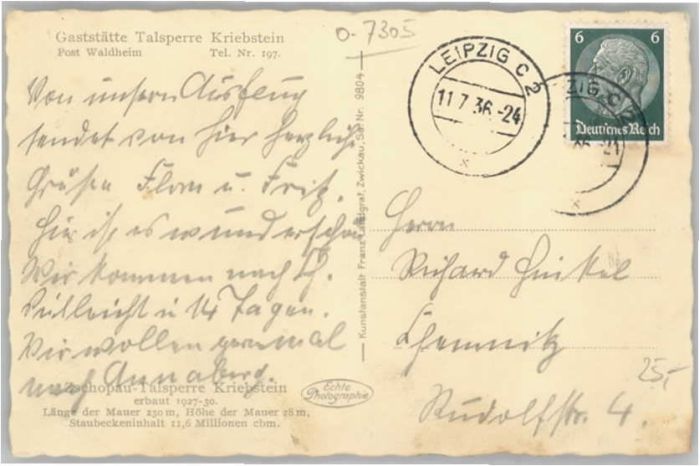 Gaststätte Talsperre Kriebstein
Post Waldheim Tel. Nr. 197.
0-7305
LEIPZIG C 2
11.7.36.-24
6 6
Deutsches Reich
ZIG C 2
Von unserm Ausflug
sendet von hier herzliche
Grüßen Flora u. Fritz.
Hier ist es wunderschön
Wir kommen nach Ch.
Vielleicht in 14 Tagen.
Wir wollen gern mal
nach Annaberg.
Zschopau-Talsperre Kriebstein
erbaut 1927-30.
Länge der Mauer 230 m, Höhe der Mauer 28 m,
Staubeckeninhalt 11,6 Millionen cbm.
Kunstanstalt Franz Landgraf, Zwickau, Sa. Nr. 9804
Echte
Photographie
Herrn
Richard Henkel
Chemnitz
Rudolfstr. 4.
25,-